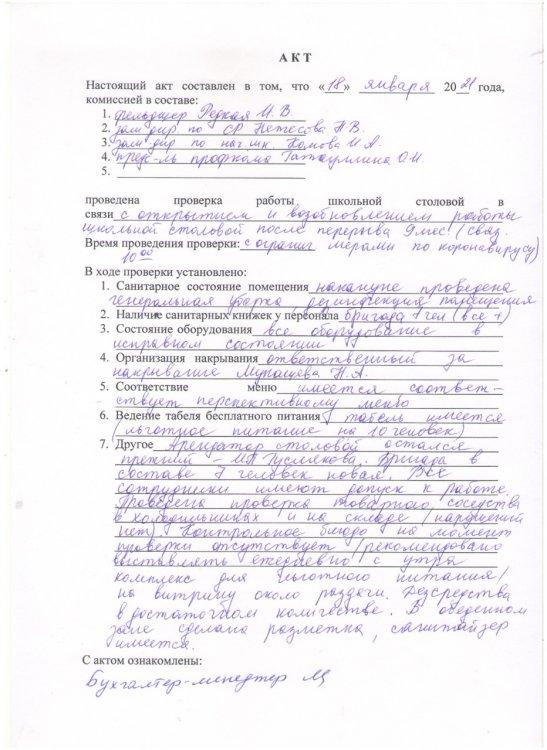 АКТ
Настоящий акт составлен в том, что «18» января 2021 года,
комиссией в составе:
1. фельдшер Редкая И.В.
2. зам дир по СР Нетесова Н.В.
3. зам. дир по нач. шк. Комова И.А.
4. пред-ль профкома Гатауллина О.И.
5.
проведена проверка работы школьной столовой в
связи с открытием и возобновлением работы
школьной столовой после перерыва 9 мес. (связ.
Время проведения проверки: с огранич мерами по коронавирусу)
10 00
В ходе проверки установлено:
1. Санитарное состояние помещения накануне проведена
генеральная уборка, дезинфекция помещения
2. Наличие санитарных книжек у персонала бригада 7 чел (все +)
3. Состояние оборудования все оборудование в
исправном состоянии
4. Организация накрывания ответственный за
накрывание Мунащева Н.А.
5. Соответствие меню имеется соответ-
ствует перспективному меню
6. Ведение табеля бесплатного питания табель имеется
(льготное питание на 10 человек)
7. Другое Арендатор столовой остался
прежний – ИП Гуслякова. Бригада в
составе 7 человек новая. Все
сотрудники имеют допуск к работе.
Проведена проверка товарного соседства
в холодильниках и на складе (нарушений
нет). Контрольное блюдо на момент
проверки отсутствует (рекомендовано
выставлять ежедневно с утра
комплекс для льготного питания)
на витрину около раздачи. Дезсредства
в достаточном количестве. В обеденном
зале сделана разметка, санитайзер
имеется.
С актом ознакомлены:
Бухгалтер-менеджер